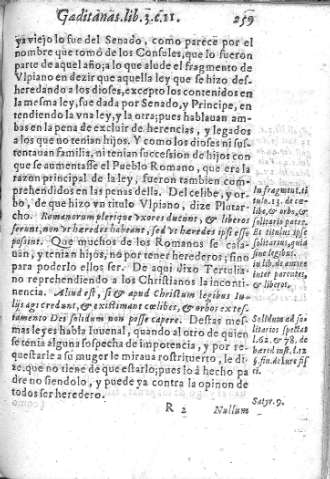 Gaditanas. lib. 3. c. 11. 259
ya viejo lo fue del Senado, como parece por el
nombre que tomò de los Consoles, que lo fueron
parte de aquel año; a lo que alude el fragmento de
Vlpiano en dezir que aquella ley que se hizo des-
heredando a los dioses, excepto los contenidos en
la mesma ley, fue dada por Senado, y Principe, en
tendiendo la vna ley, y la otra; pues hablauan am-
bas en la pena de excluir de herencias, y legados
a los que no tenian hijos. Y como los dioses ni sus-
tentauan familia, ni tenian succession de hijos con
que se aumentasse el Pueblo Romano, que era la
razon principal de la ley, fueron tambien com-
prehendidos en las penas della. Del celibe, y or-
bo, de que hizo vn titulo Vlpiano, dize Plutar-
cho. Romanorum plerique vxores ducunt, & liberos
ferunt, non vt hæredes habeant, sed vt hæredes ipsi esse
possint. Que muchos de los Romanos se casa-
uan, y tenian hijos, no por tener herederos; sino
para poderlo ellos ser. De aqui dixo Tertulia-
no reprehendiendo a los Christianos la inconti-
nencia. Aliud est, si & apud Christum legibus Iu-
lijs agi credunt, & existimant cœlibes, & orbos ex tes-
tamento Dei solidum non posse capere. Destas mes-
mas leyes habla Iuuenal, quando al otro de quien
se tenia alguna sospecha de impotencia, y por re-
questarle a su muger le miraua rostrituerto, le di-
ze: que no tiene de que estarlo; pues lo à hecho pa
dre no siendolo, y puede ya contra la opinon de
todos ser heredero.
R 2 Nullum
In fragmut. ti
tulo. 13. de cœ-
libe, & orbo, &
solitario patre.
Et titulus ipse
solitarius, quia
sine legibus.
iu lib. de amore
inter parentes,
& liberos.
Solidum ad so-
litarios spectat
l. 62. & 78. de
hæred inst. l. 2
§. fin. de iure fis
ci.
Satyr. 9.